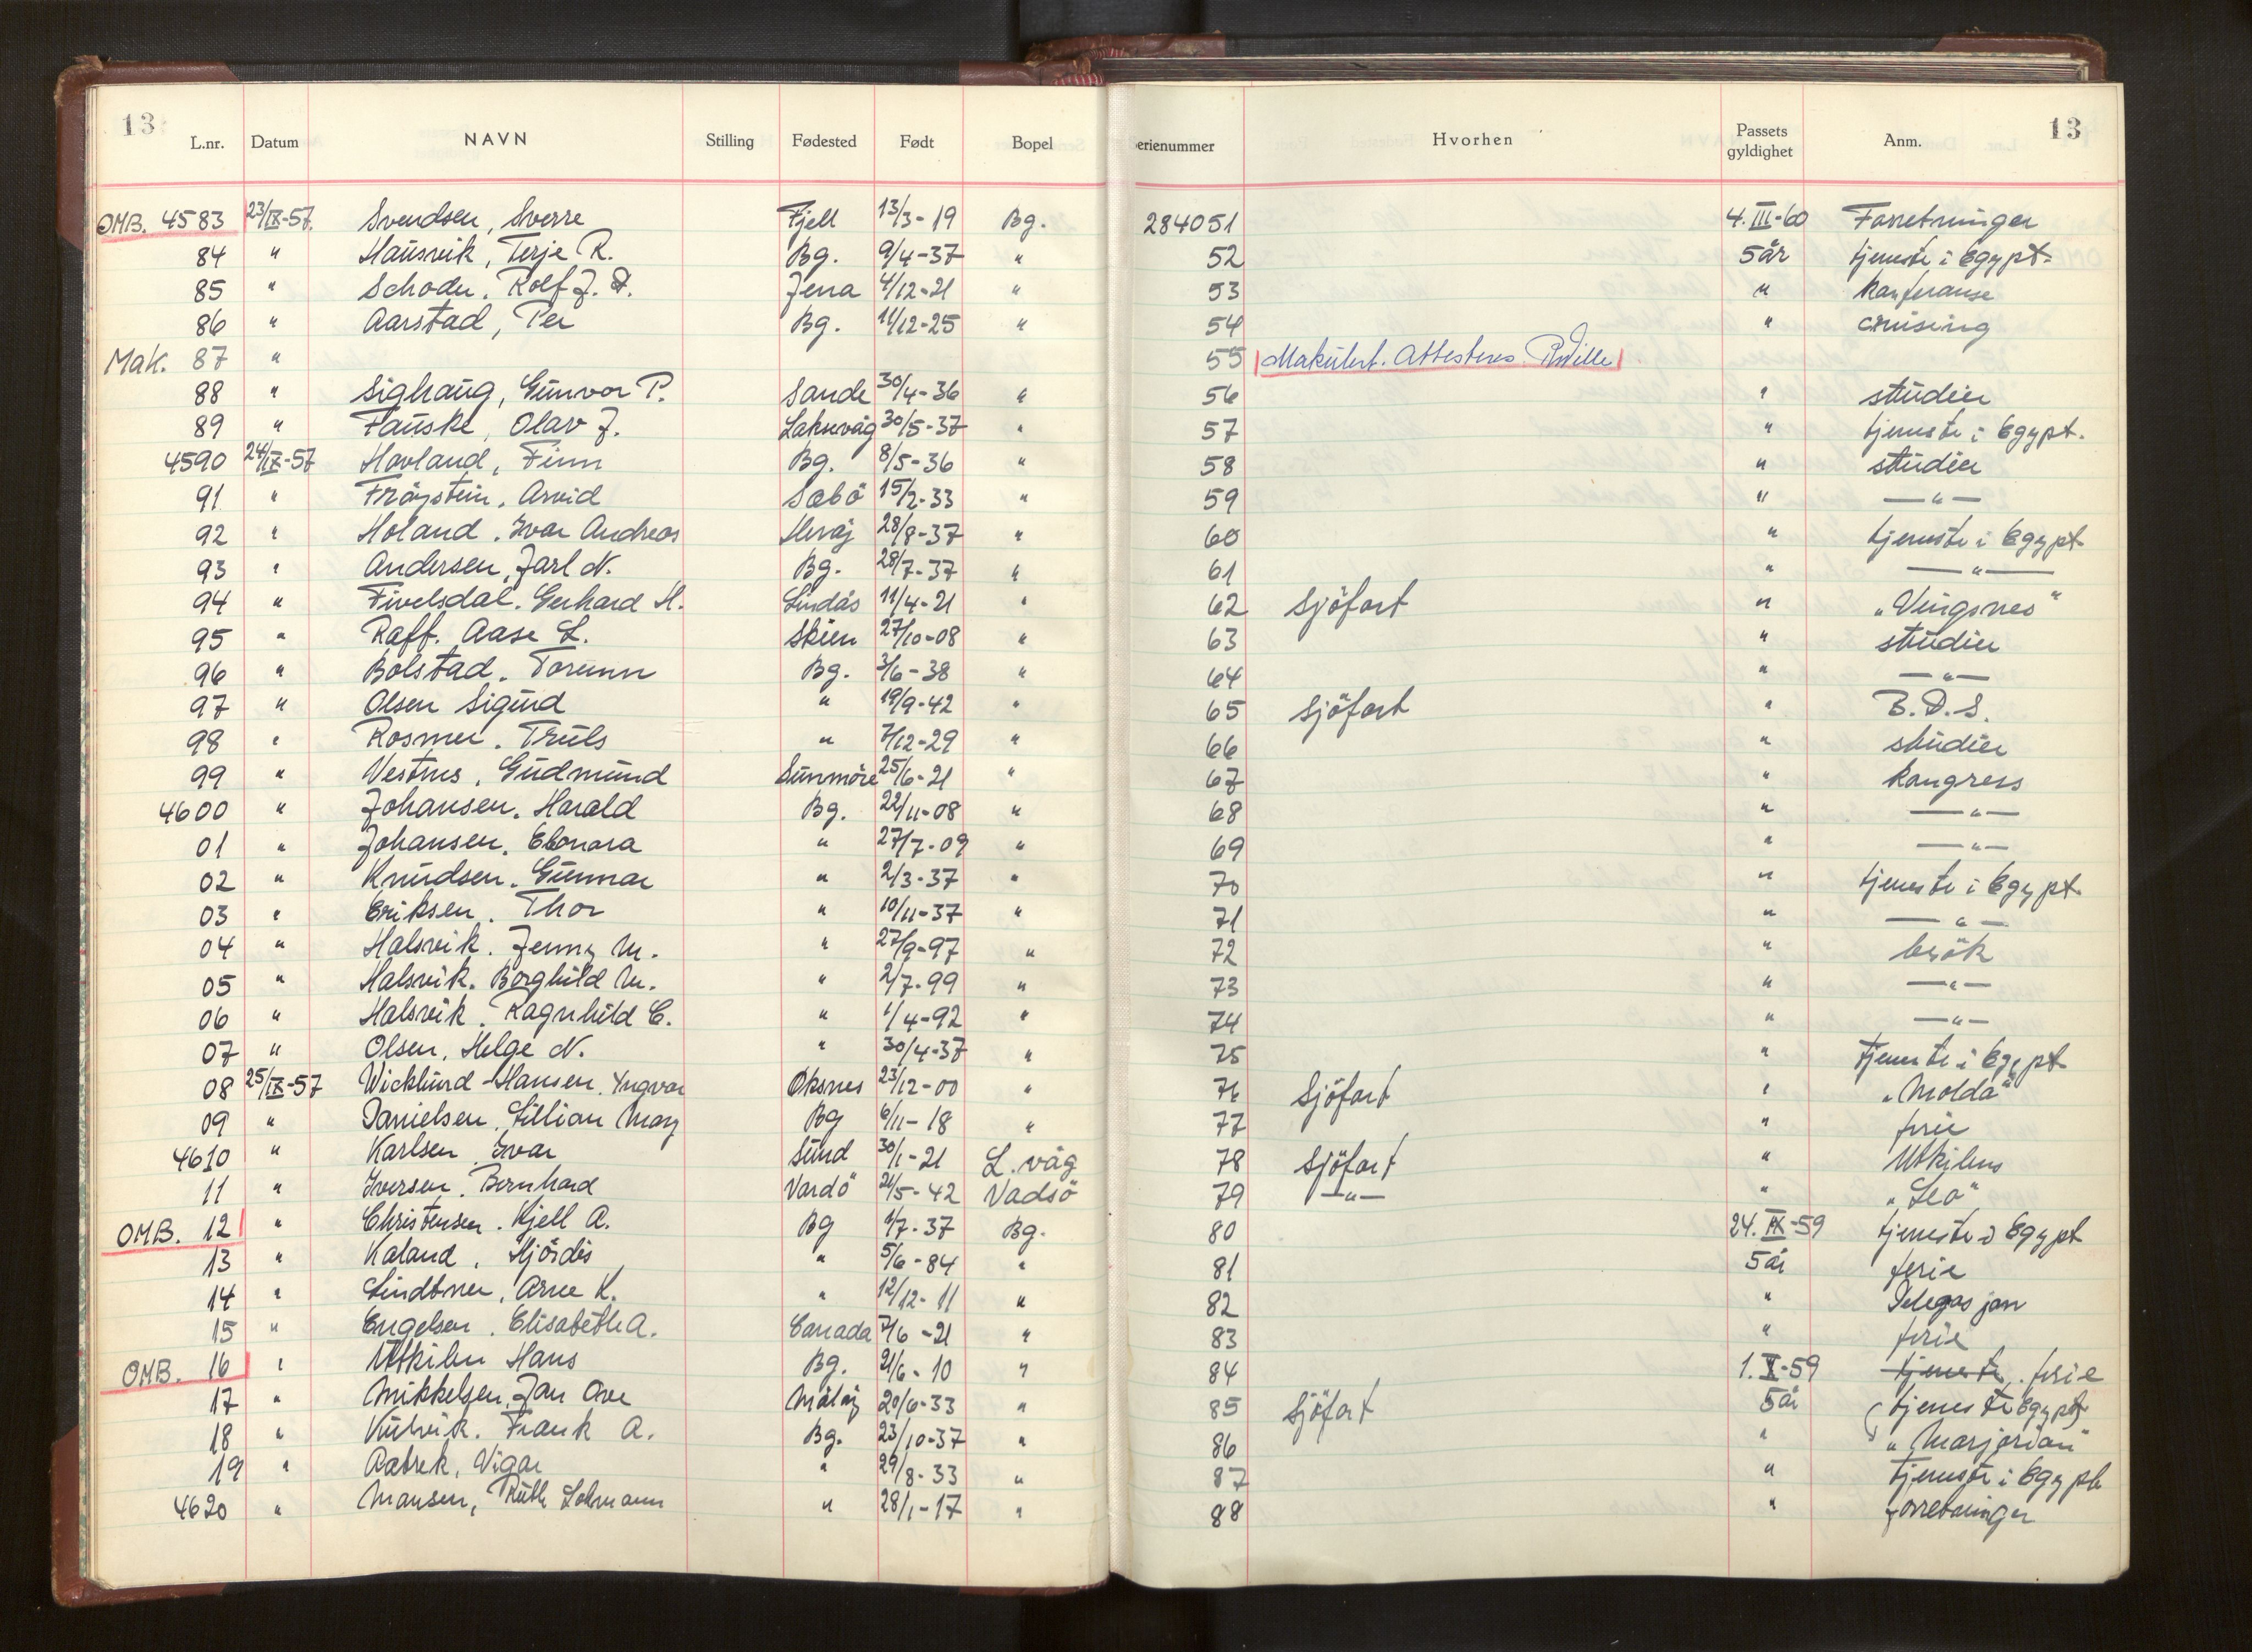 13 L.nr. Datum NAVN Stilling Fødested Født Bopel erienummer Hvorhen Passets gyldighet Anm. 13
OMB. 4583 23/IX-57. Svendsen, Sverre Fjell 13/3-19 Bg. 284051 4.III-60 Forretninger
84 " Hausvik, Terje R. Bg. 9/4-37 " 52 5 år tjeneste i Egypt.
85 " Schoder. Rolf J. Jena 4/12-21 " 53 " konferanse
86 " Aarstad, Per Bg. 11/12-25 " 54 " cruising
Mak. 87 " 55 Makulert. Attesteres.
88 " Sighaug, Gunvor P. Sande 30/4-36 " 56 " studier
89 " Fauske, Olav J. Laksevåg 30/5-37 " 57 " tjeneste i Egypt.
4590 24/IX-57 Hovland, Finn Bg. 8/5-36 " 58 " studier
91 " Fröystein. Arvid Sæbö 15/2-33 " 59 " —"—
92 " Holand. Ivar Andreas 28/8-37 " 60 " tjeneste i Egypt
93 " Andersen, Jarl N. Bg. 28/7-37 " 61 " —"—
94 " Fivelsdal. Gerhard H. Lindås 11/4-21 " 62 Sjöfart " "Vingsnes"
95 " Raff. Aase L. Skien 27/10-08 " 63 " studier
96 " Bolstad. Torunn Bg. 3/6-38 " 64 " —"—
97 " Olsen Sigurd " 19/9-42 " 65 Sjöfart " B.D.S.
98 " Rosmer. Truls " 7/12-29 " 66 " studier
99 " Vestnes, Gudmund Sunmöre 25/6-21 " 67 " kongress
4600 " Johansen. Harald Bg. 22/11-08 " 68 " —"—
01 " Johansen. Elonora " 27/7-09 " 69 " —"—
02 " Knudsen. Gunnar " 2/3-37 " 70 " tjeneste i Egypt.
03 " Eriksen. Thor " 10/11-37 " 71 " —"—
04 " Halsvik. Jenny M. " 27/9-97 " 72 " besök
05 " Halsvik. Borghild M. " 2/7-99 " 73 " —"—
06 " Halsvik. Ragnhild E. " 1/4-92 " 74 " —"—
07 " Olsen, Helge N. " 30/4-37 " 75 " tjeneste i Egypt
08 25/IX-57 Wicklund-Hansen. Yngvar Öksnes 23/12-00 " 76 Sjöfart " "Molda"
09 " Danielsen, Lillian May Bg 6/11-18 " 77 " ferie
4610 " Karlsen, Ivar Sund 30/1-21 L.våg 78 Sjöfart " Utkilens
11 " Iversen. Bernhard Vardö 21/5-42 Vadsö 79 —"— " "Leo"
OMB. 12 " Christensen. Kjell A. Bg 1/7-37 Bg. 80 24.IX-59 tjeneste i Egypt
13 " Kaland, Hjördis " 5/6-84 " 81 5 år ferie
14 " Lindtner, Arne K. " 12/12-11 " 82 " Delegasjon
15 " Engelsen. Elisabeth A. Canada 7/6-21 " 83 " ferie
OMB. 16 " Utkilen Hans Bg. 21/6-10 " 84 1.X-59 tjeneste. ferie
17 " Mikkelsen, Jan Ove Målöy 20/6-33 " 85 Sjöfart 5 år tjeneste Egypt
18 " Frank A. Bg. 23/10-37 " 86 " "Marjorian"
19 " Aatrek, Vigar " 29/8-33 " 87 " tjeneste i Egypt
4620 " Mansen, Ruth Lohmann " 28/1-17 " 88 " forretninger